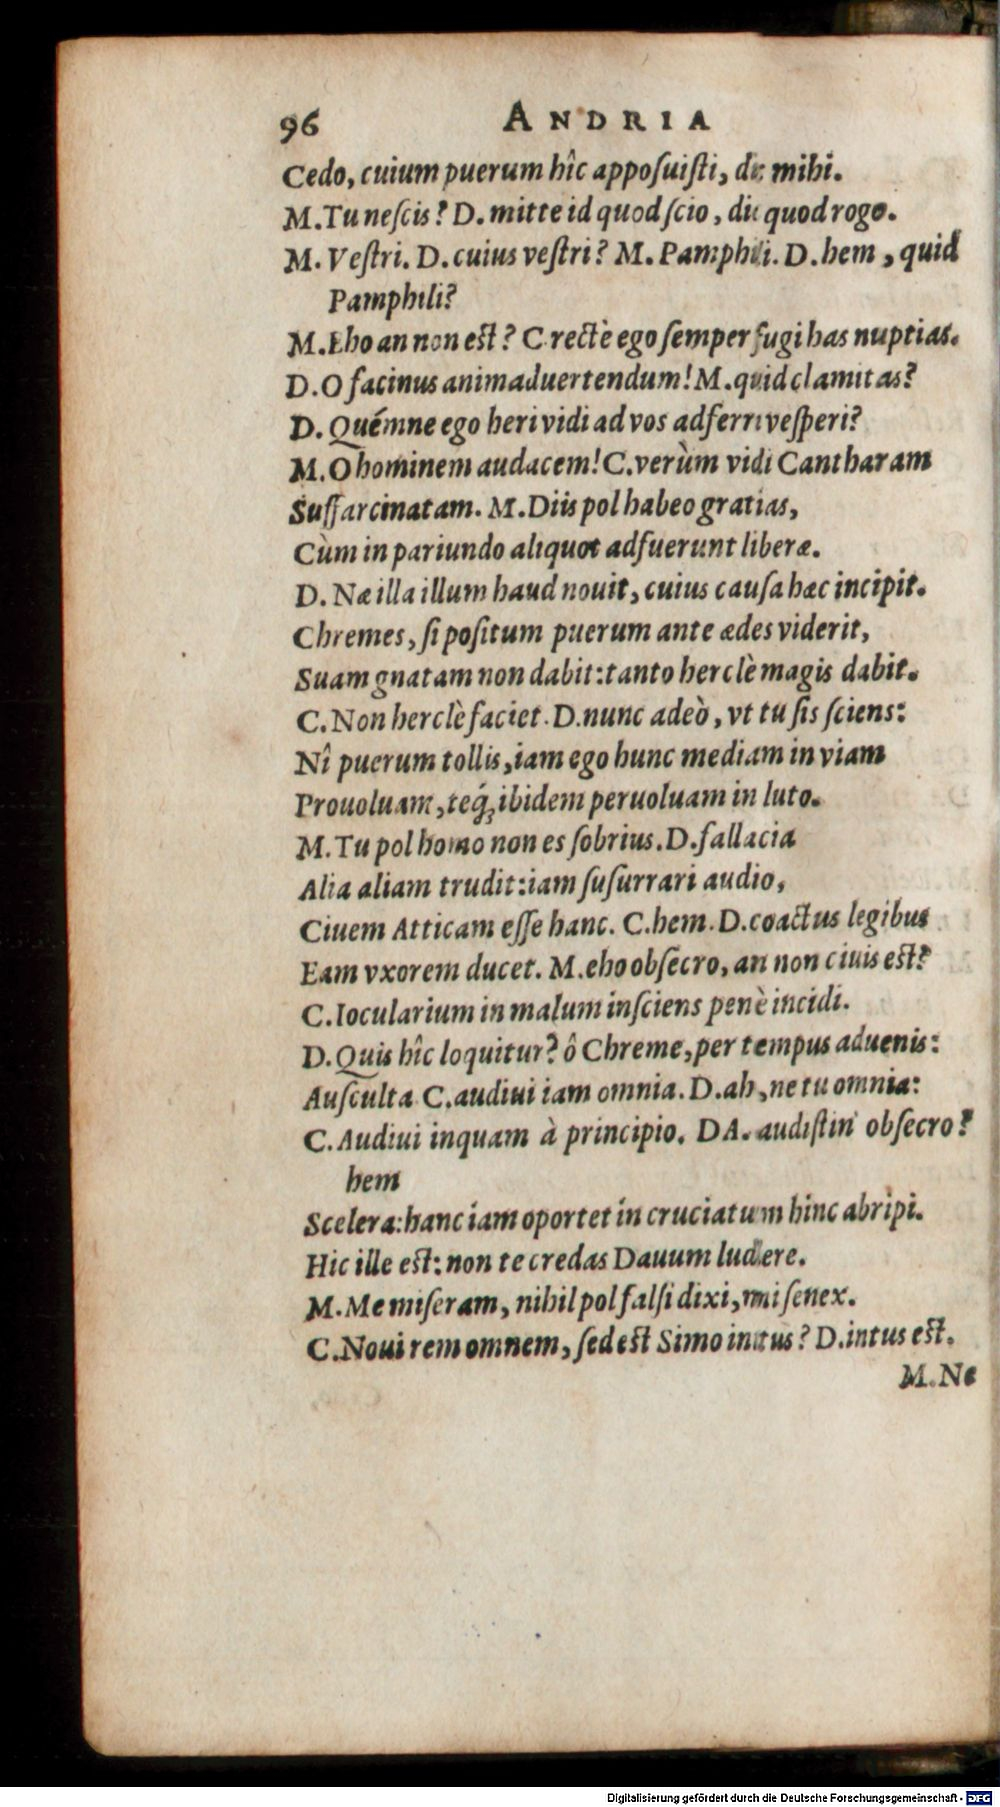 96 ANDRIA
Cedo, cuium puerum hîc apposuiſti, dic mihi.
M.Tu neſcis? D. mitte id quod ſcio, dic quod rogo.
M. Veſtri. D. cuius veſtri? M. Pamphili. D. hem, quid
Pamphili?
M.Eho an non est? C rectè ego ſemper fugi has nuptias.
D.O facinus animaduertendum! M. quid clamitas?
D. Quémne ego heri vidi ad vos adferri veſperi?
M.O hominem audacem! C.verùm vidi Cantharam
Suffarcinatam. M.Diis pol habeo gratias,
Cùm in pariundo aliquot adfuerunt liberæ.
D. Næ illa illum haud nouit, cuius cauſa hæc incipit.
Chremes, ſi poſitum puerum ante ædes viderit,
Suam gnatam non dabit: tanto herclè magis dabit.
C.Non herclè faciet. D.nunc adeò, vt tu ſis ſciens:
Nî puerum tollis, iam ego hunc mediam in viam
Prouoluam, teq́; ibidem peruoluam in luto.
M.Tu pol homo non es ſobrius. D.fallacia
Alia aliam trudit: iam ſuſurrari audio,
Ciuem Atticam eſſe hanc. C.hem. D.coactus legibus
Eam vxorem ducet. M.eho obſecro, an non ciuis est?
C.Iocularium in malum inſciens penè incidi.
D.Quis hîc loquitur? ô Chreme, per tempus aduenis:
Auſculta C.audiui iam omnia. D.ah, ne tu omnia:
C.Audiui inquam à principio. DA. audiſtin' obſecro?
hem
Scelera: hanc iam oportet in cruciatum hinc abripi.
Hic ille est: non te credas Dauum ludere.
M.Me miſeram, nihil pol falſi dixi, mi ſenex.
C.Noui rem omnem, ſed est Simo intus? D.intus est.
M.Ne
Digitalisierung gefördert durch die Deutsche Forschungsgemeinschaft - DFG